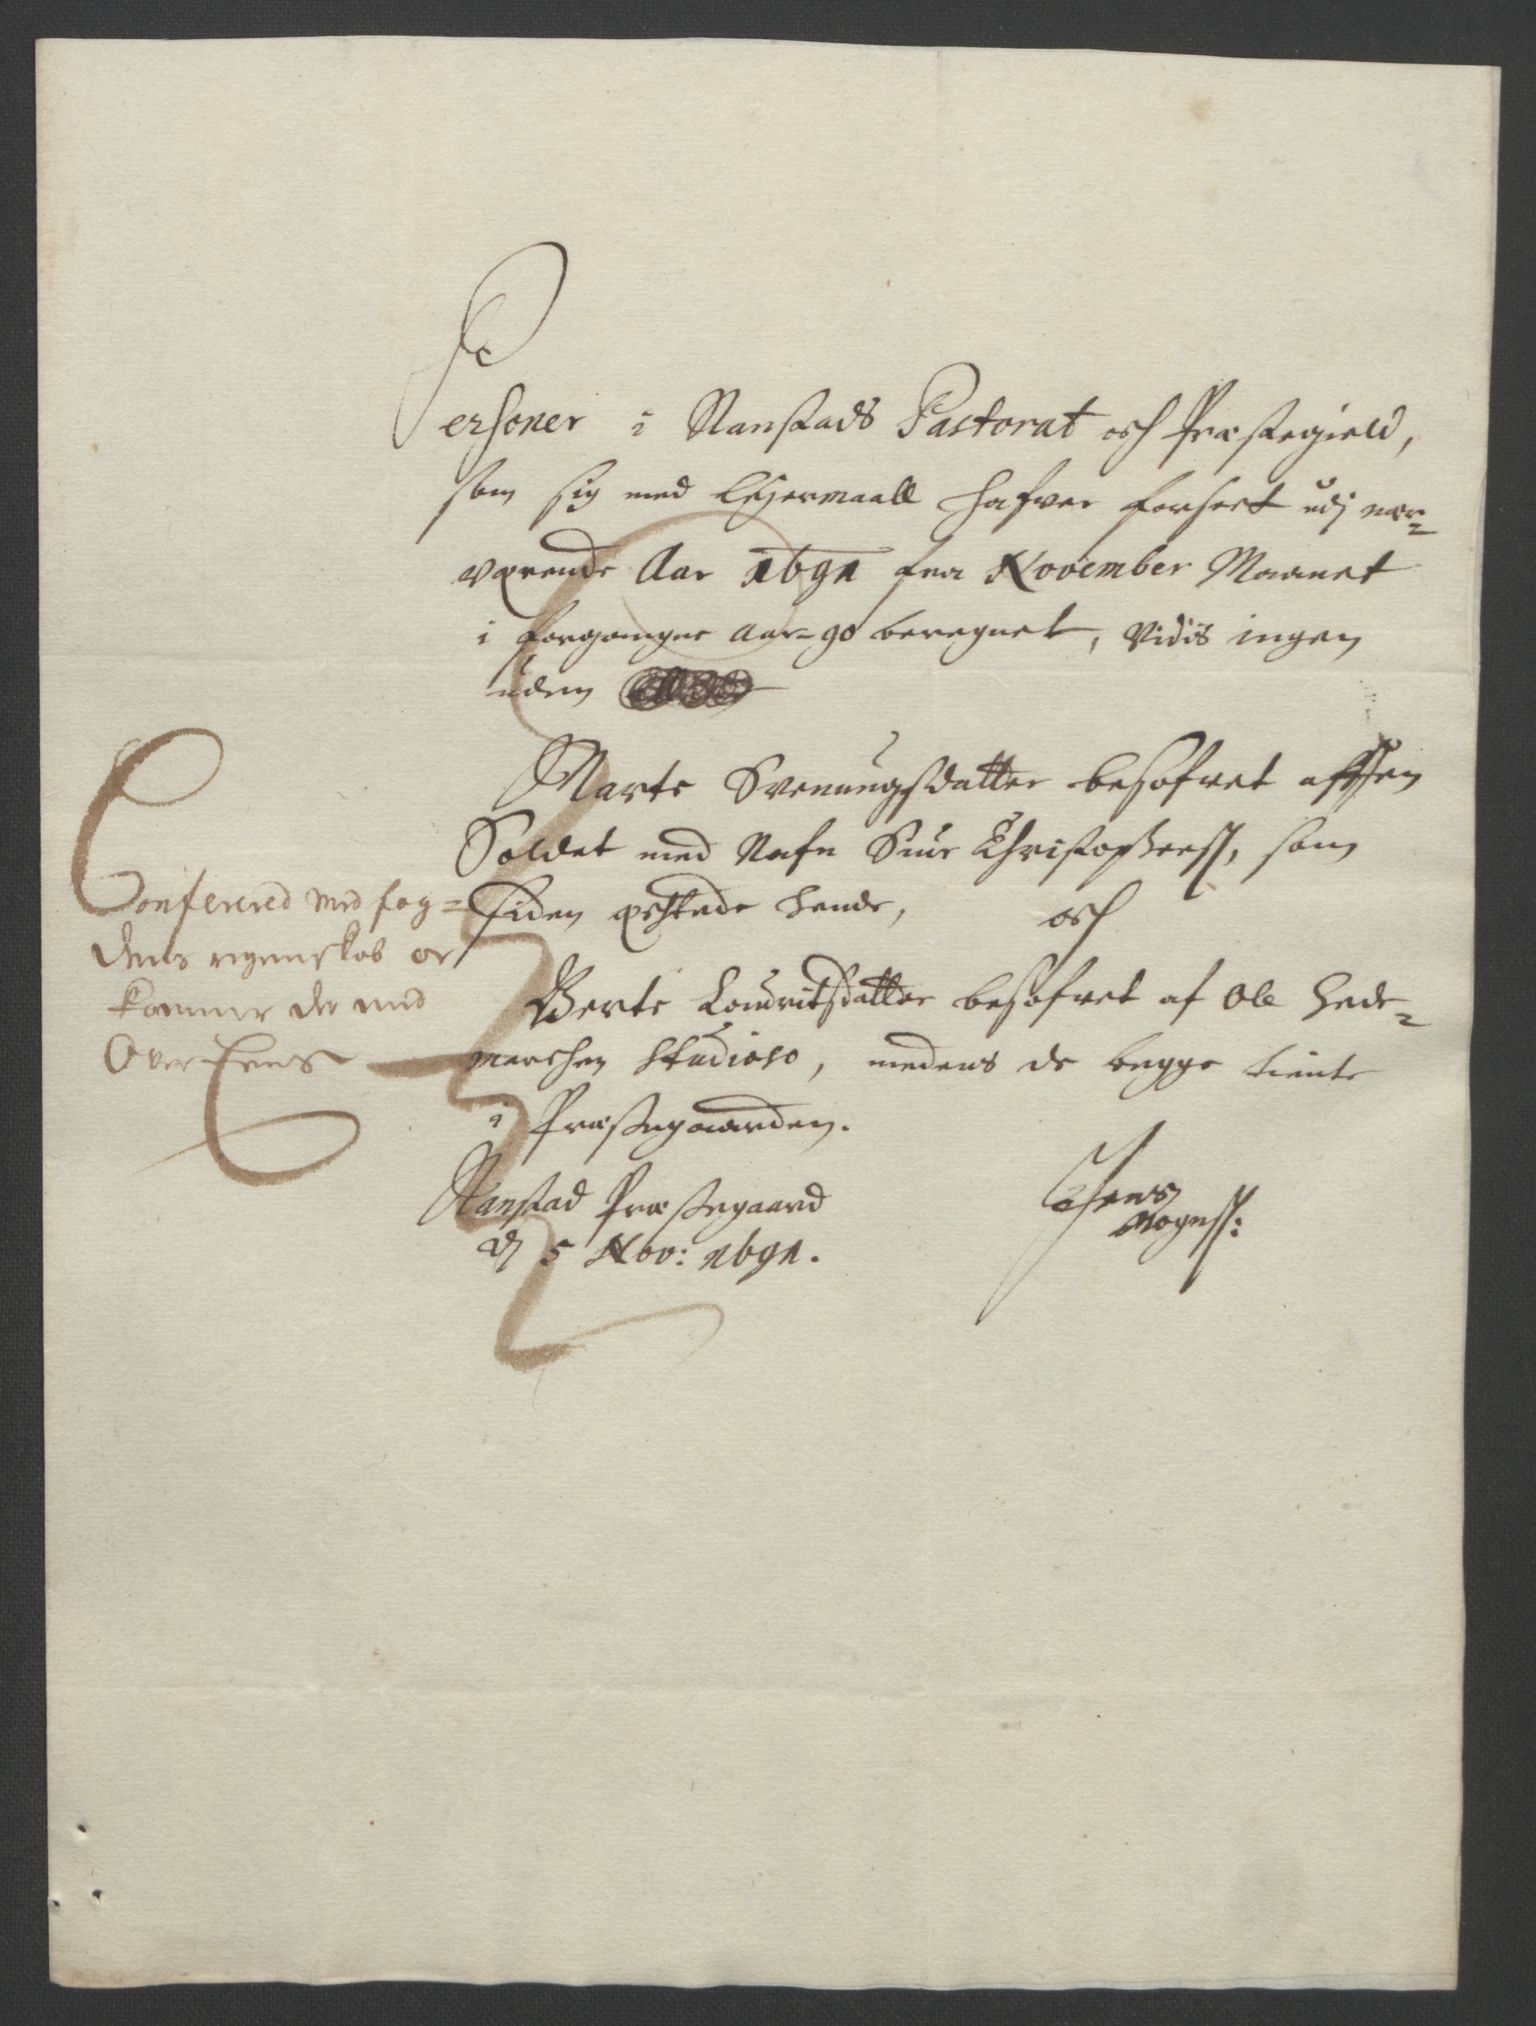 Personer i Nanstads Pastorat och Præstegield,
som sig med Leyermaall hafver forseet udj nær-
værende Aar 1691 fra November Maanet
i forgangne Aar 90 beregnet, vidis ingen
uden
Marte Svenungsdatter besofvet aff en
Soldat med Nafn Siur Christophers. som
siden ægtede hende,
och
Berte Lauritsdatter besofvet af Ole Hede-
marchen Studioso, medens de begge tiente
i Præstegaarden.
Nanstad Præstegaard
d 5 Nov: 1691.
Jens
Mogenss:
Confererid med fog-
dens regenskab oc
kommer der med
Over Eens